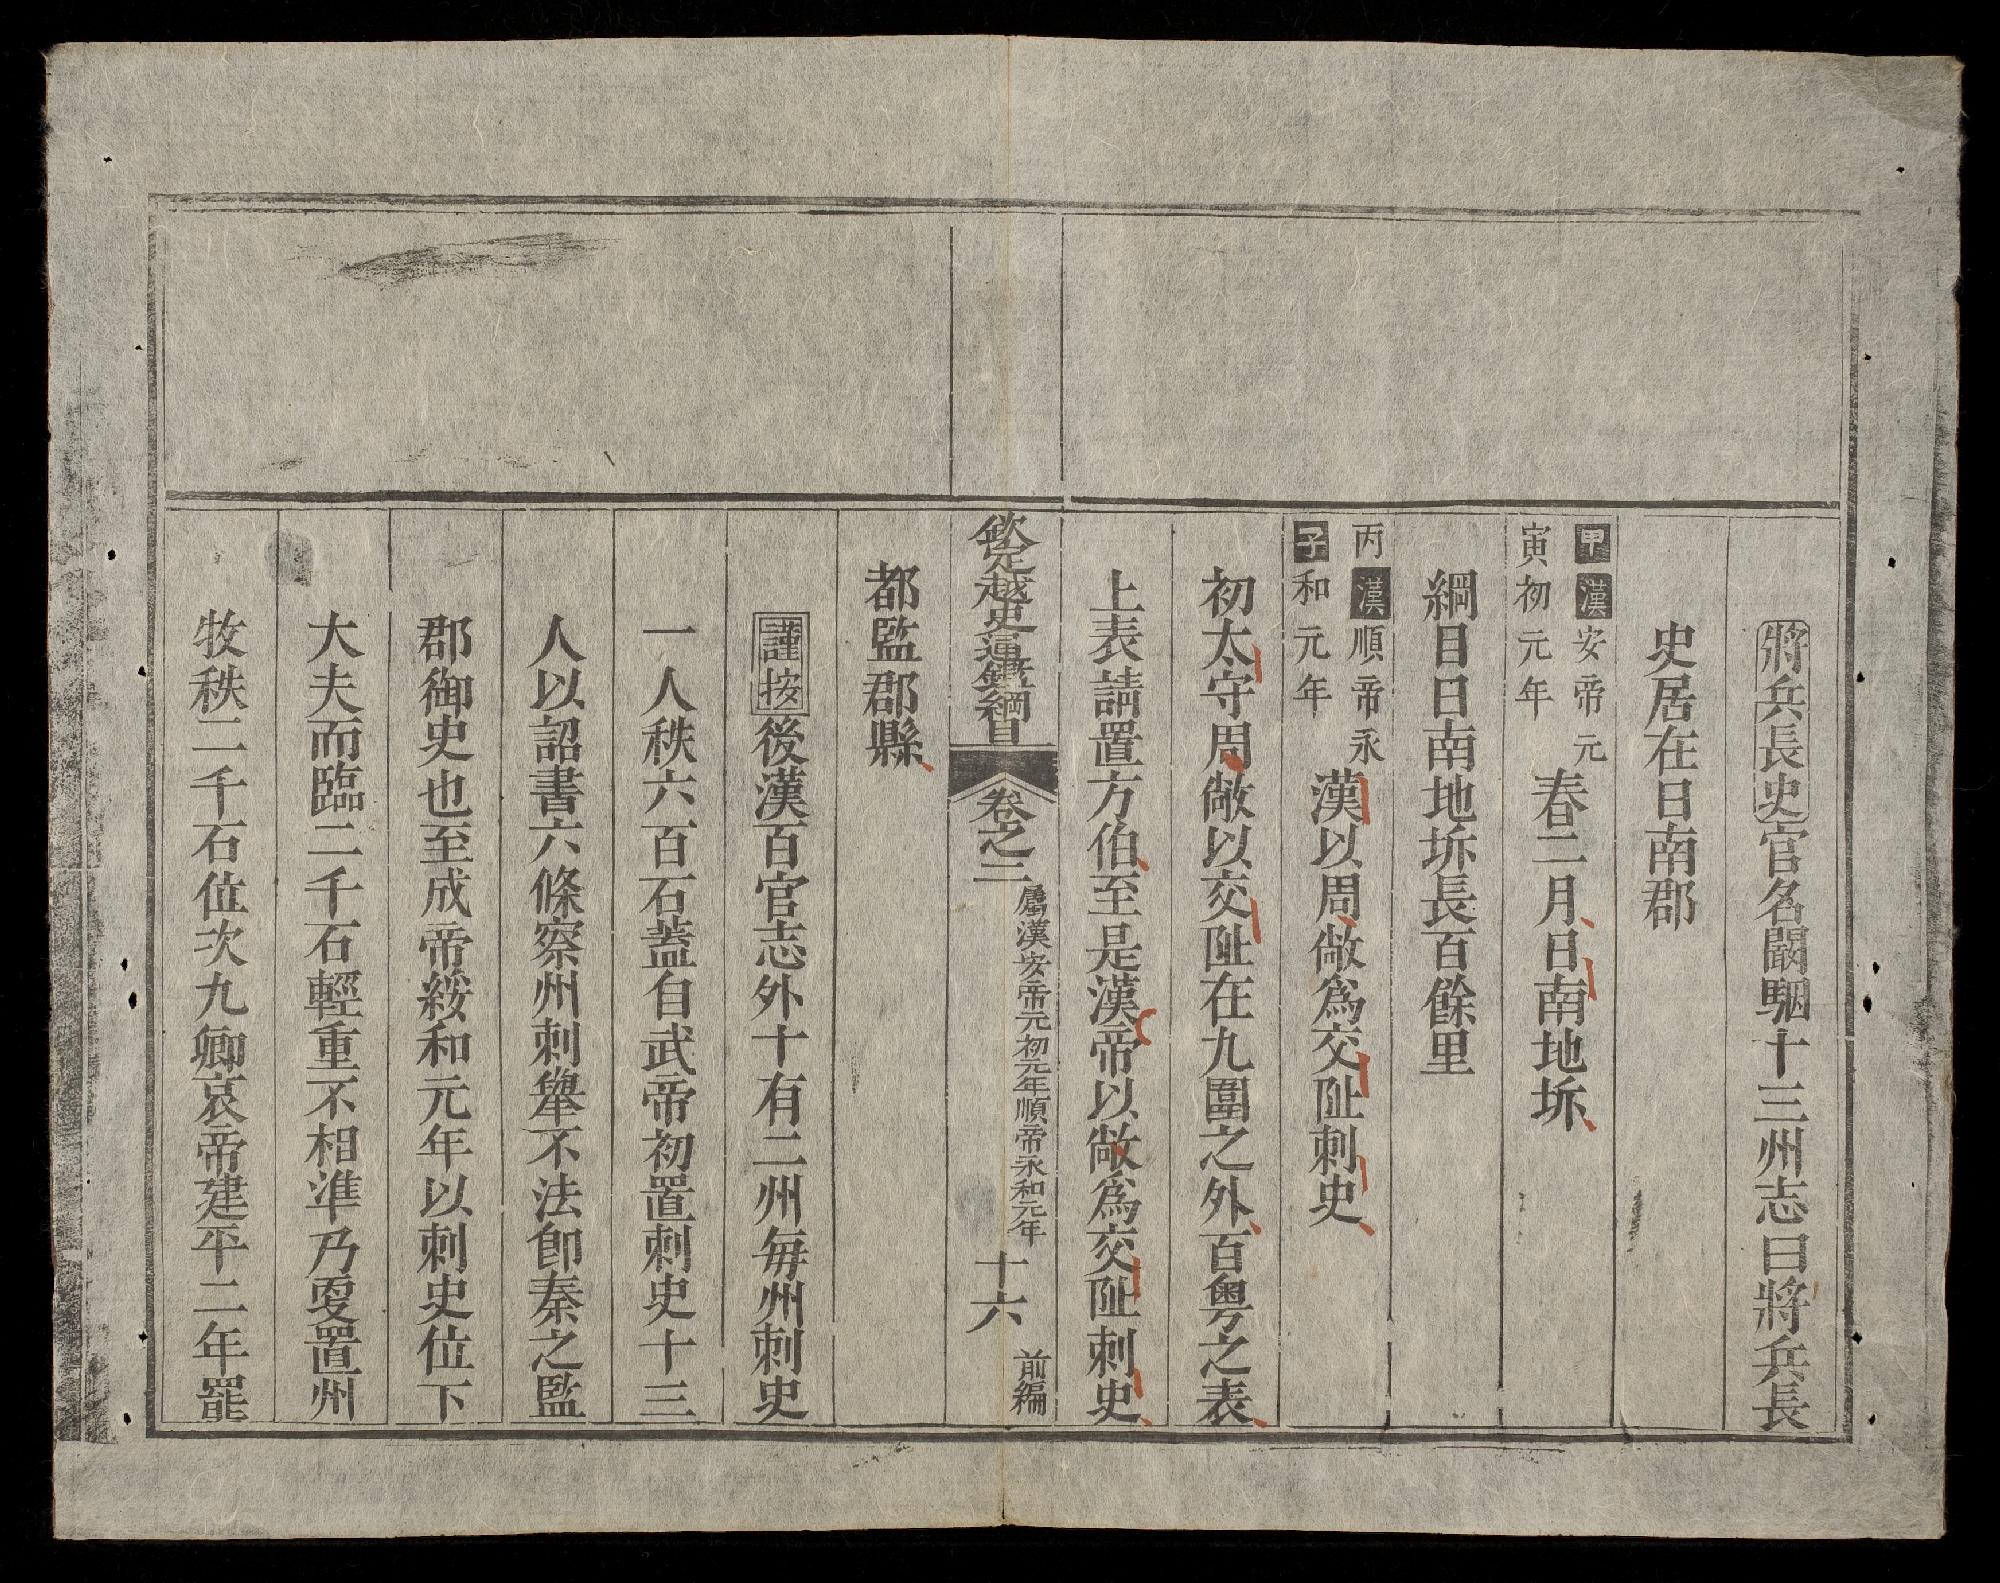 將兵長史官名闞駰十三州志曰將兵長
史居在日南郡
甲漢安帝元
寅初元年
春二月日南地坼
綱目日南地坼長百餘里
丙漢順帝永
子和元年
漢以周敞爲交阯刺史
初太守周敞以交阯在九圍之外百粤之表
上表請置方伯至是漢帝以敞爲交阯刺史
欽定越史通鑑綱目
卷之二
屬漢安帝元初元年順帝永和元年
十六
前編
都監郡縣
謹按後漢百官志外十有二州每州刺史
一人秩六百石蓋自武帝初置刺史十三
人以詔書六條察州刺舉不法卽秦之監
郡御史也至成帝綏和元年以刺史位下
大夫而臨二千石輕重不相準乃更置州
牧秩二千石位次九卿哀帝建平二年罷